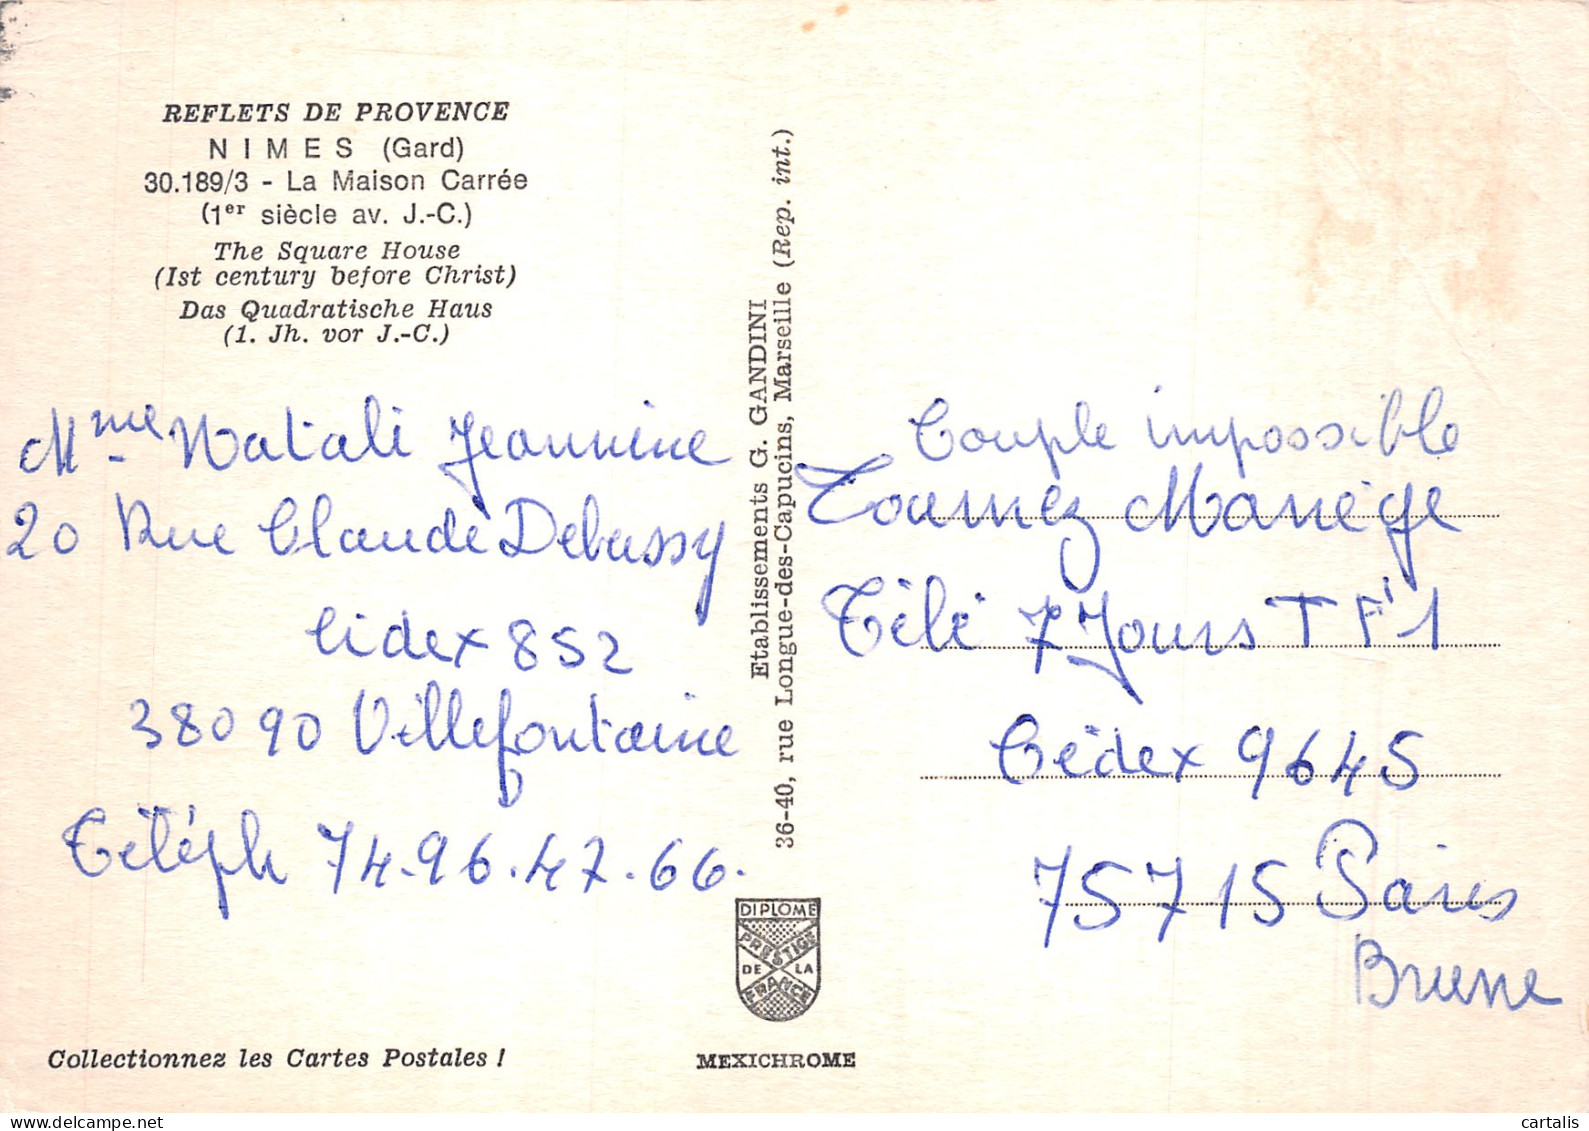 REFLETS DE PROVENCE
NIMES (Gard)
30.189/3 - La Maison Carrée
(1er siècle av. J.-C.)
The Square House
(Ist century before Christ)
Das Quadratische Haus
(1. Jh. vor J.-C.)
Mme Natali Jeannine
20 Rue Claude Debussy
Cidex 852
38090 Villefontaine
Téléph 74.96.47.66.
Collectionnez les Cartes Postales !
Etablissements G. GANDINI
36-40, rue Longue-des-Capucins, Marseille (Rep. int.)
DIPLOME
PRESTIGE
DE LA
FRANCE
MEXICHROME
Couple impossible
Tournez Manège
Télé 7 Jours TF1
Cédex 9645
75715 Paris
Brune
cartalis
delcampe.net